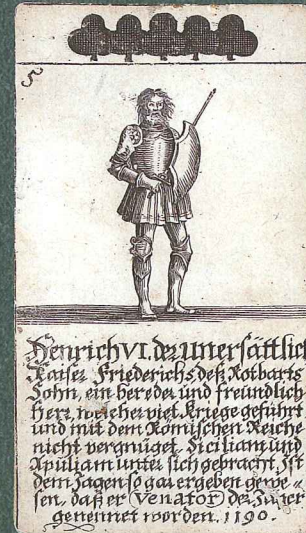 5
Henrich VI. der Unersättlich
Kaiser Friederichs deß Rotbarts
Sohn, ein bereder und freundlich
Herr, welcher viel Kriege geführt
und mit dem Römischen Reiche
nicht vergnüget, Siciliam und
Apuliam unter sich gebracht, Ist
dem Jagen so gar ergeben gewe=
sen, daß er Venator der Jäger
genennet worden. 1190.